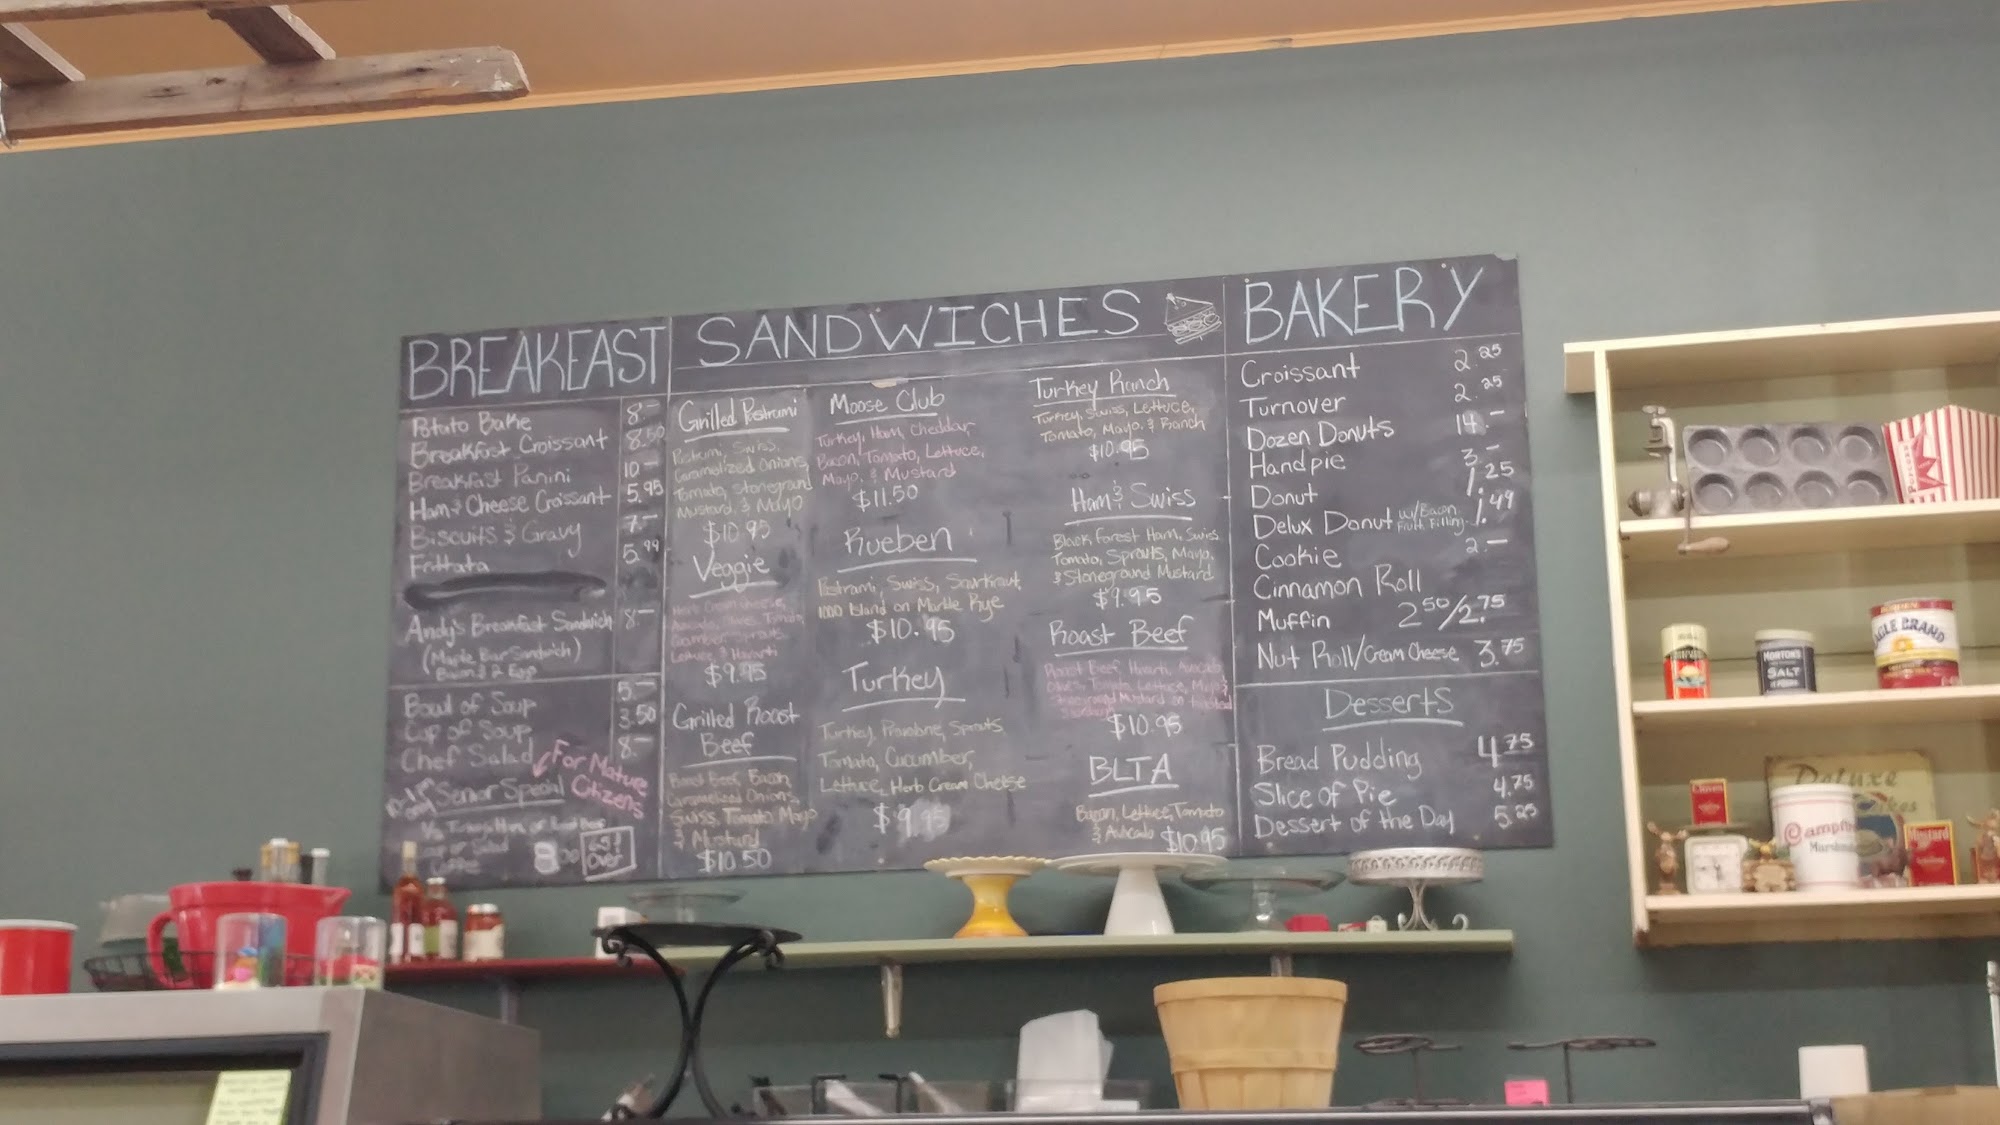 BREAKFAST
Potato Bake 8.—
Breakfast Croissant 8.50
Breakfast Panini 10—
Ham & Cheese Croissant 5.95
Biscuits & Gravy 7.—
Frittata 5.99
Andy's Breakfast Sandwich 8.—
(Maple Bar Sandwich)
Bacon & 2 Egg
Bowl of Soup 5.—
Cup of Soup 3.50
Chef Salad 8.—
For Mature
Citizens
Senior Special
8.00
65 &
Over
SANDWICHES
Grilled Pastrami
Pastrami, Swiss,
Caramelized Onions,
Tomato, Stoneground
Mustard, & Mayo
$10.95
Veggie
Herb Cream Cheese,
Lettuce & Havarti
$9.95
Grilled Roast
Beef
Roast Beef, Bacon,
Caramelized Onions,
Swiss, Tomato Mayo
& Mustard
$10.50
Moose Club
Turkey, Ham, Cheddar,
Bacon, Tomato, Lettuce,
Mayo, & Mustard
$11.50
Rueben
Pastrami, Swiss, Saurkraut,
1000 Island on Marble Rye
$10.95
Turkey
Turkey, Provolone, Sprouts
Tomato, Cucumber,
Lettuce, Herb Cream Cheese
$9.95
Turkey Ranch
Turkey, Swiss, Lettuce,
Tomato, Mayo, & Ranch
$10.95
Ham & Swiss
Black Forest Ham, Swiss
Tomato, Sprouts, Mayo,
& Stoneground Mustard
$9.95
Roast Beef
Roast Beef, Havarti, Avocado,
Olives, Tomato, Lettuce, Mayo &
Stoneground Mustard on
$10.95
BLTA
Bacon, Lettuce, Tomato
& Avocado $10.95
BAKERY
Croissant 2.25
Turnover 2.25
Dozen Donuts 14.—
Handpie 3.—
Donut 1.25
Delux Donut w/Bacon Fruit Filling 1.49
Cookie 2.—
Cinnamon Roll
Muffin 2.50/2.75
Nut Roll/Cream Cheese 3.75
Desserts
Bread Pudding 4.75
Slice of Pie 4.75
Dessert of the Day 5.25
Popcorn
BORDEN
EAGLE BRAND
MORTON'S
SALT
Deluxe
Cloves
Campfire
Marshmallows
Mustard